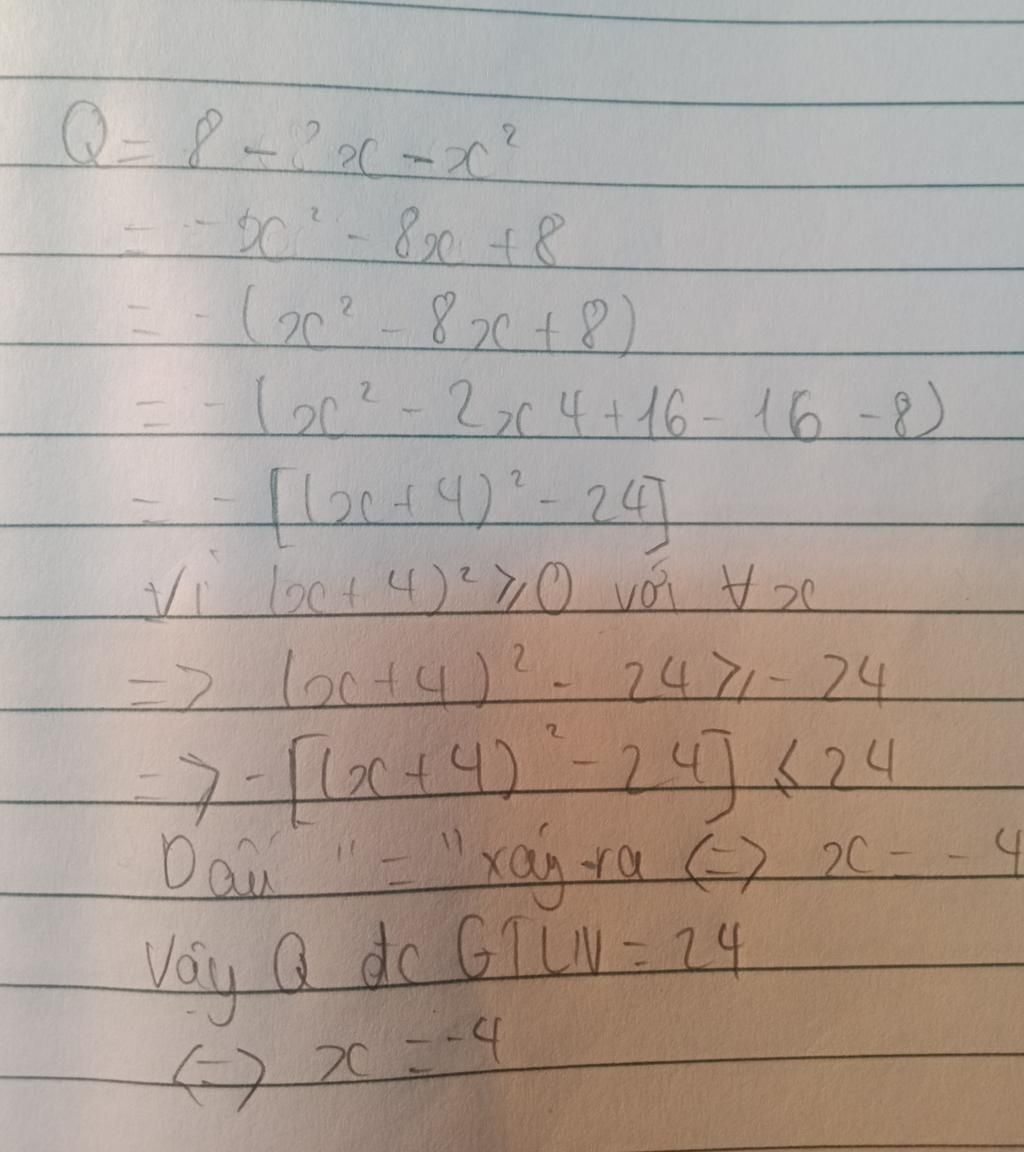 Q = 8 - 8x - x²
= - x² - 8x + 8
= - (x² - 8x + 8)
= - (x² - 2x4 + 16 - 16 - 8)
= - [(x + 4)² - 24]
Vì (x + 4)² ≥ 0 với ∀x
=> (x + 4)² - 24 ≥ - 24
=> - [(x + 4)² - 24] ≤ 24
Dấu "=" xảy ra <=> x = - 4
Vậy Q đc GTLN = 24
<=> x = -4